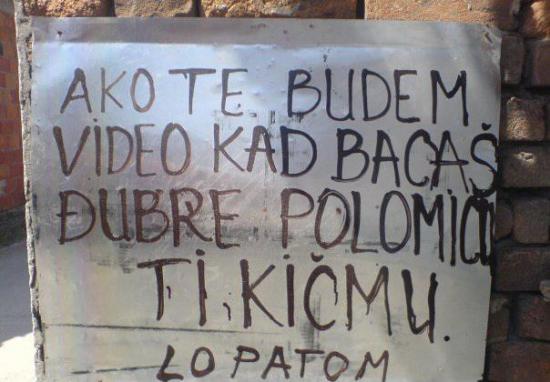 AKO TE BUDEM
VIDEO KAD BACAŠ
ĐUBRE POLOMIĆU
TI KIČMU.
LOPATOM